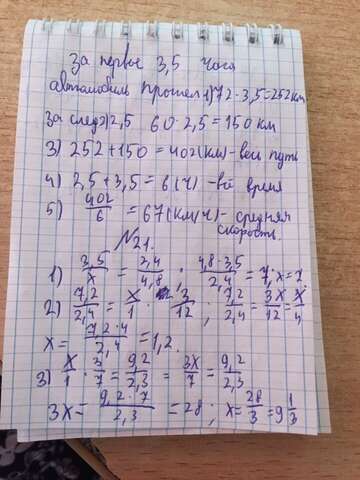 За первые 3,5 часа
автомобиль прошел 1) 72 · 3,5 = 252 км
За след 2) 2,5 60 · 2,5 = 150 км
3) 252 + 150 = 402 (км) - весь путь
4) 2,5 + 3,5 = 6 (ч) - всё время
5) 402/6 = 67 (км/ч) - средняя
скорость.
№21.
1) 3,5/x = 2,4/4,8 ; 4,8 · 3,5/2,4 = 7; x = 7
2) 7,2/2,4 = x/1 · 3/12 ; 7,2/2,4 = 3x/12 = x/4
x = 7,2 · 4/2,4 = 1,2.
3) x/1 · 3/7 = 9,2/2,3 = 3x/7 = 9,2/2,3
3x = 9,2 · 7/2,3 = 28 ; x = 28/3 = 9 1/3